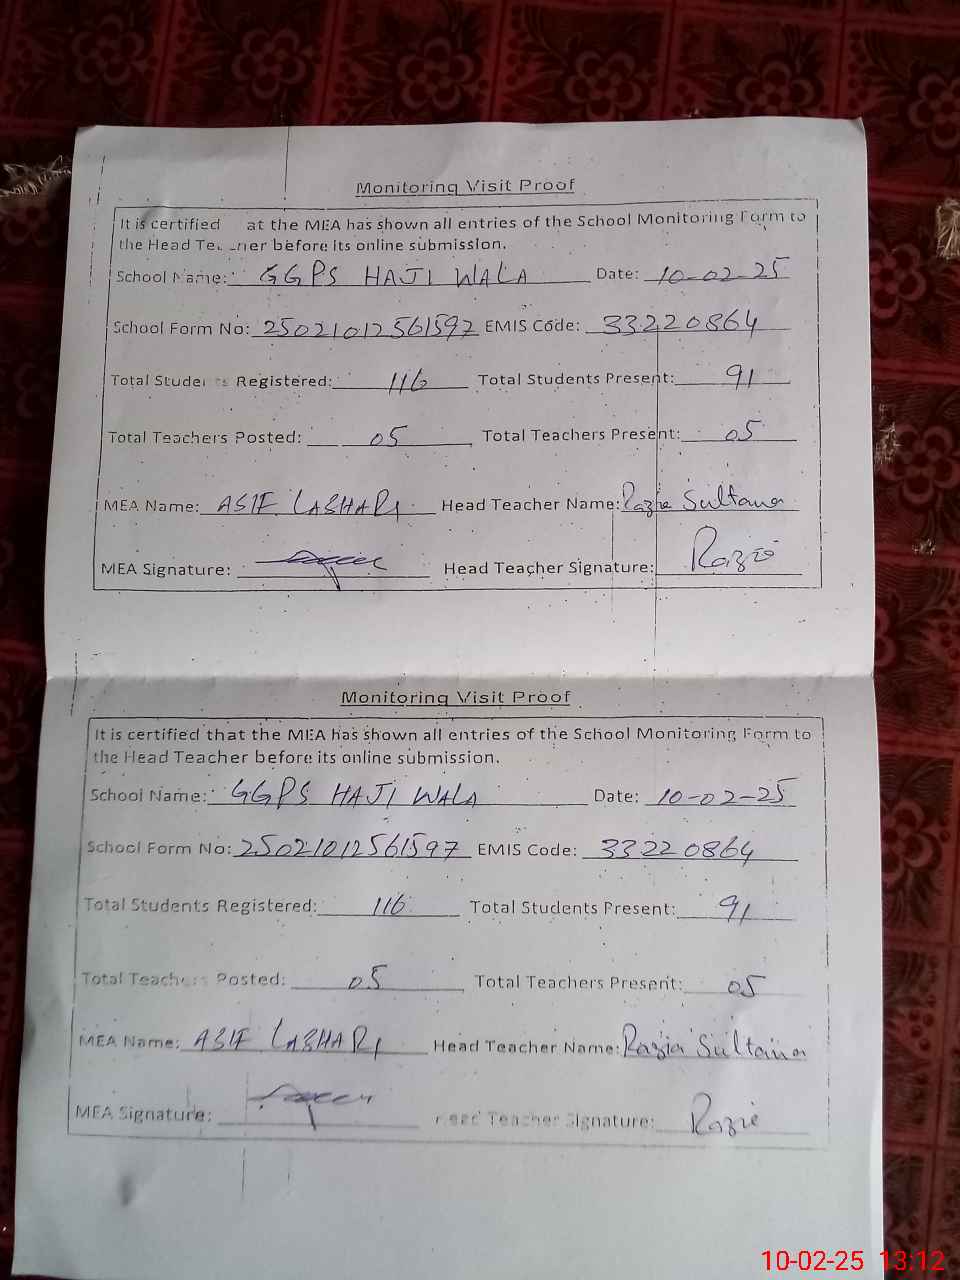 Monitoring Visit Proof
It is certified at the MEA has shown all entries of the School Monitoring Form to
the Head Teacher before its online submission.
School Name: GGPS HAJI WALA Date: 10-02-25
School Form No: 25021012561597 EMIS Code: 33220864
Total Students Registered: 116 Total Students Present: 91
Total Teachers Posted: 05 Total Teachers Present: 05
MEA Name: ASIF LASHARI Head Teacher Name: Razia Sultana
MEA Signature: Head Teacher Signature: Razia
Monitoring Visit Proof
It is certified that the MEA has shown all entries of the School Monitoring Form to
the Head Teacher before its online submission.
School Name: GGPS HAJI WALA Date: 10-02-25
School Form No: 25021012561597 EMIS Code: 33220864
Total Students Registered: 116 Total Students Present: 91
Total Teachers Posted: 05 Total Teachers Present: 05
MEA Name: ASIF LASHARI Head Teacher Name: Razia Sultana
MEA Signature: Head Teacher Signature: Razia
10-02-25 13:12